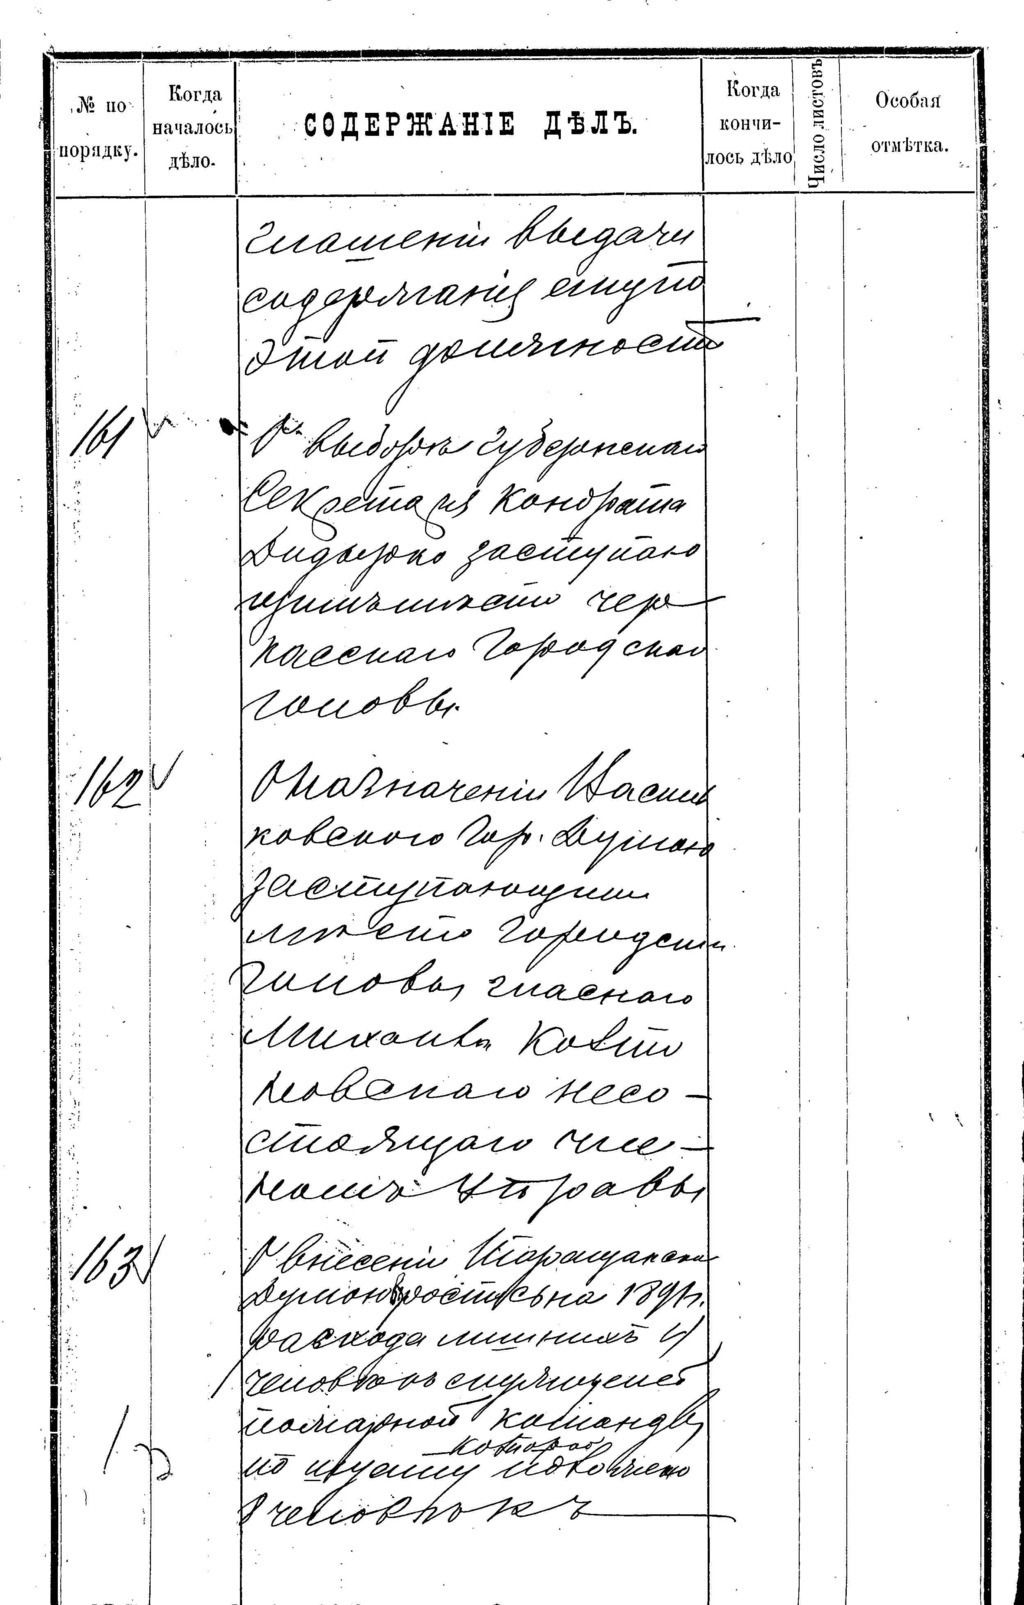 № по порядку.
Когда началось дѣло.
СОДЕРЖАНІЕ ДѢЛЪ.
Когда кончилось дѣло
Число листовъ
Особая отмѣтка.
глашеніи выдачи
содержанія ему по
этой должности
161 О выборѣ Губернскаго
Секретаря Кондрата
заступаю
щимъ мѣсто Чер
касскаго Городскаго
головы.
162 О назначеніи Василь
ковскою Гор. Думою
заступающимъ
мѣсто Городскаго
Головы, гласнаго
Михаила
новскаго несо-
стоящаго чле-
номъ Управы
163 О внесеніи Таращанскою
Думою въ роспись на 1891 г.
расхода лишнихъ 4
человѣкъ служителей
пожарной команды,
по штату которой положено
8 человѣкъ